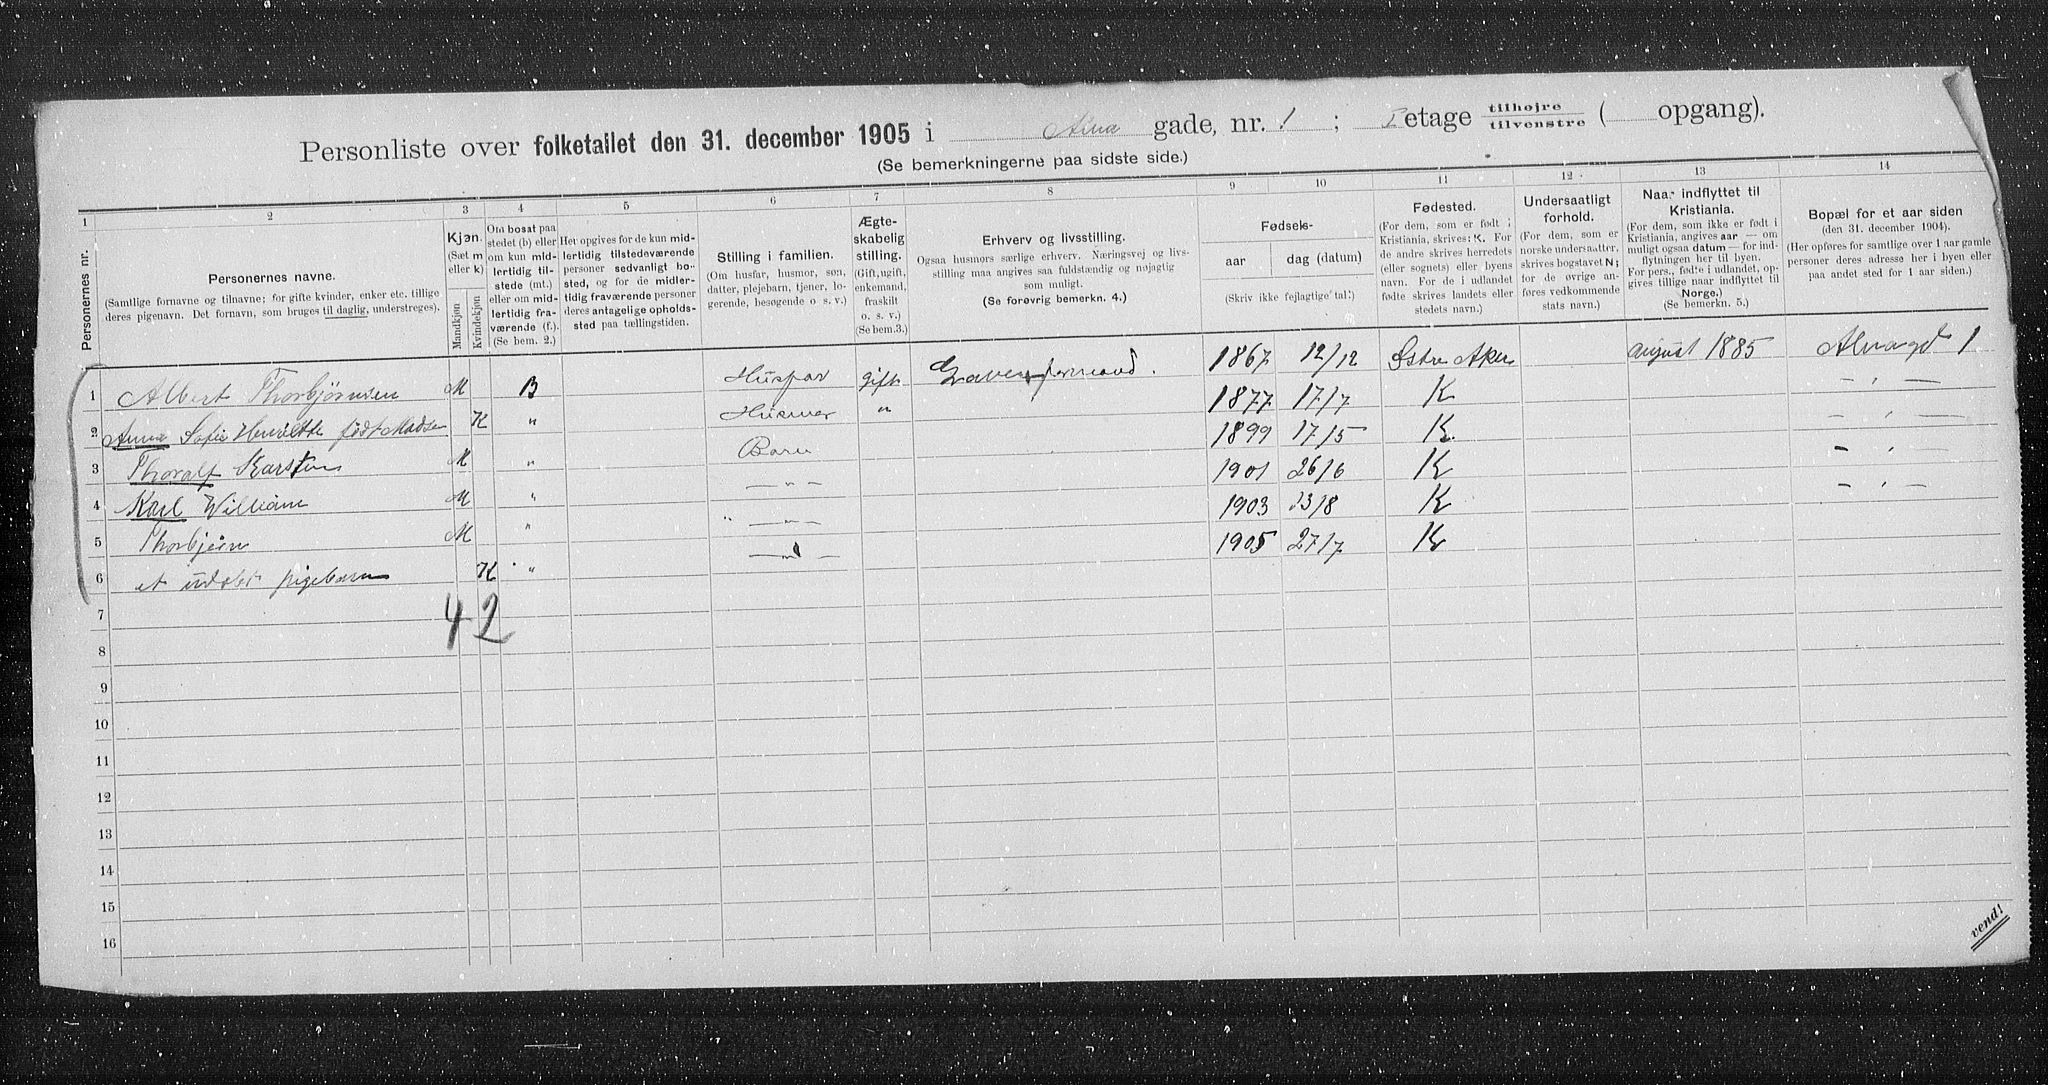 Personliste over folketallet den 31. december 1905 i Alna gade, nr. 1; I etage tilhøjre / tilvenstre ( opgang).
(Se bemerkningerne paa sidste side.)
1 2 3 4 5 6 7 8 9 10 11 12 13 14
Personernes nr.
Personernes navne.
(Samtlige fornavne og tilnavne; for gifte kvinder, enker etc. tillige deres pigenavn. Det fornavn, som bruges til daglig, understreges).
Kjøn.
(Sæt m eller k)
Mandkjøn
Kvindekjøn
Om bosat paa stedet (b) eller om kun midlertidig tilstede (mt.) eller om midlertidig fraværende (f.). (Se bem. 2.)
Her opgives for de kun midlertidig tilstedeværende personer sedvanligt bosted, og for de midlertidig fraværende personer deres antagelige opholdssted paa tællingstiden.
Stilling i familien.
(Om husfar, husmor, søn, datter, plejebarn, tjener, logerende, besøgende o. s. v.)
Ægteskabelig stilling.
(Gift, ugift, enkemand, fraskilt o. s. v.)
(Se bem. 3.)
Erhverv og livsstilling.
Ogsaa husmors særlige erhverv. Næringsvej og livsstilling maa angives saa fuldstændig og nøjagtig som muligt.
(Se forøvrig bemerkn. 4.)
Fødsels-
aar
dag (datum)
(Skriv ikke fejlagtige tal!)
Fødested.
(For dem, som er født i Kristiania, skrives: K. For de andre skrives herredets (eller sognets) eller byens navn. For de i udlandet fødte skrives landets eller stedets navn.)
Undersaatligt forhold.
(For dem, som er norske undersaatter, skrives bogstavet N; for de øvrige anføres vedkommende stats navn.)
Naar indflyttet til Kristiania.
(For dem, som ikke er født i Kristiania, angives aar — om muligt ogsaa datum — for indflytningen her til byen. For pers., fødte i udlandet, opgives tillige naar indflyttet til Norge.)
(Se bemerkn. 5.)
Bopæl for et aar siden
(den 31. december 1904).
(Her opføres for samtlige over 1 aar gamle personer deres adresse her i byen eller paa andet sted for 1 aar siden.)
1 Albert Thorbjørnsen M B Husfar gift 1867 12/12 Østre Aker August 1885 Alnagd 1
2 Anna Sofie Henriette født Madsen K " Husmor " 1877 17/7 K — " —
3 Thoralf Karsten M " Barn 1899 17/5 K. — " —
4 Karl William M " — " — 1901 26/6 K — " —
5 Thorbjørn M " " — " — 1903 13/8 K — " —
6 et udøbt pigebarn K " — " — 1905 27/7 K
4 2
7
8
9
10
11
12
13
14
15
16
vend!